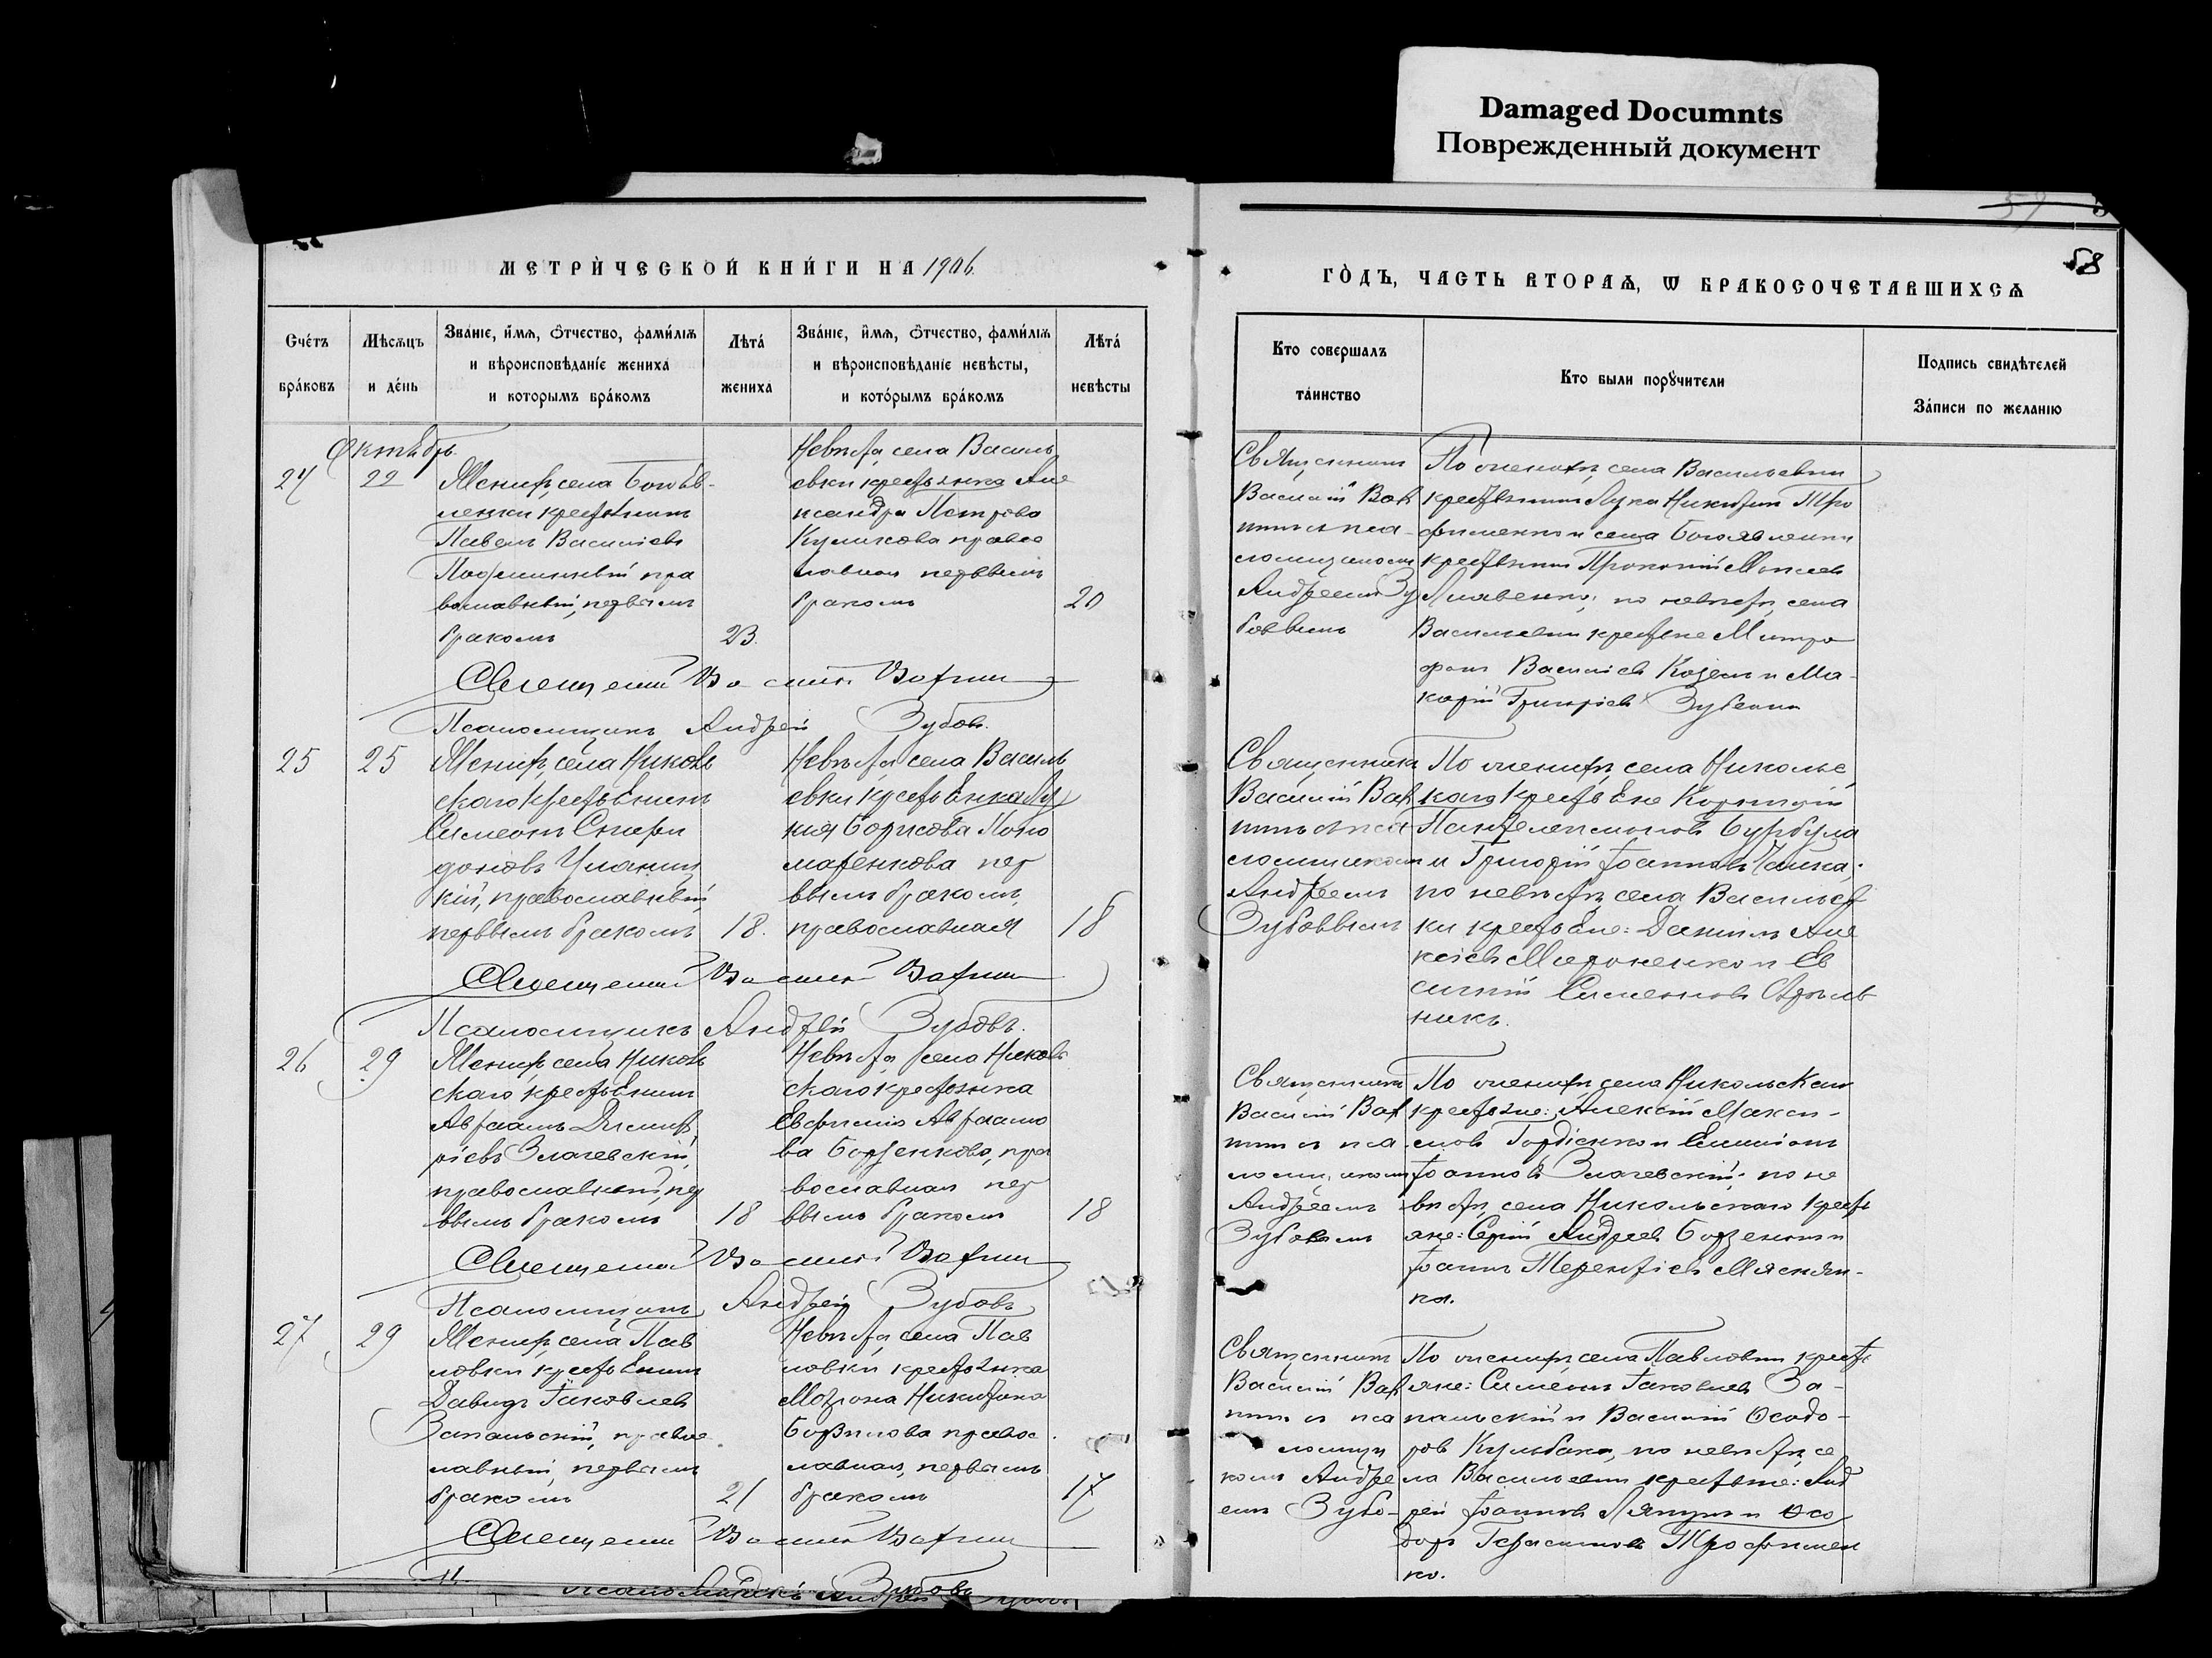 Damaged Documnts
Поврежденный документ
58
МЕТРИЧЕСКОЙ КНИГИ НА 1906.
ГОДЪ, ЧАСТЬ ВТОРАѦ, Ѡ БРАКОСОЧЕТАВШИХСѦ
Счетъ браковъ
Мѣсѧцъ и день
Званіе, имѧ, отчество, фамиліѧ
и вѣроисповѣданіе жениха
и которымъ бракомъ
Лѣта жениха
Званіе, имѧ, отчество, фамиліѧ
и вѣроисповѣданіе невѣсты,
и которымъ бракомъ
Лѣта невѣсты
Кто совершалъ
таинство
Кто были порꙋчители
Подпись свидѣтелей
Записи по желанію
Октябрь.
22
Женихъ, села Бояв-
ленки крестьянинъ
Павелъ Васильевъ
пра
вославный, первымъ
бракомъ
23.
Невѣста, села Василь
евки крестьянка Але
ксандра Петрова
Куликова правос
лавная первымъ
бракомъ
20
Священникъ
Василій
и пса
ломщикомъ
Андреемъ Зу
бовымъ
По жениху, села Васильевки
крестьянинъ Лука Никитинъ Тро
фименко и села Богоявленки
крестьянинъ Прокопій
по невѣстѣ, села
Васильевки крестьяне Митро
фанъ Васильевъ Козелъ и Ма-
карій Григорьевъ
Священникъ Василій
Псаломщикъ Андрей Зубовъ.
25
25
Женихъ, села Николь
скаго крестьянинъ
Симеонъ Спири
доновъ
кій, православный,
первымъ бракомъ
18.
Невѣста, села Василь
евки крестьянка Лу
кія Борисова Поно
маренкова пер
вымъ бракомъ,
православная
18
Священникъ
Василій
и пса
ломщикомъ
Андреемъ
Зубовымъ
По жениху, села Никольс
каго крестьяне
Пантелеимоновъ Бурбула
и Григорій Іоанновъ Чайка;
по невѣстѣ, села Васильев
ки крестьяне: Даніилъ Але
ксіевъ Мироненко и Ев
Симеоновъ
никъ.
Священникъ Василій
Псаломщикъ Андрей Зубовъ.
26
29
Женихъ, села Николь
скаго крестьянинъ
Авраамъ Димит
ріевъ Злачевскій,
православный, пер
вымъ бракомъ
18
Невѣста, села Николь
скаго крестьянка
Евфимія Авраамо
ва Борзенкова, пра
вославная пер
вымъ бракомъ
18
Священникъ
Василій
и пса
ломщикомъ
Андреемъ
Зубовымъ
По жениху, села Никольскаго
крестьяне: Алексій Макси-
мовъ Гордіенко и
Іоанновъ Злачевскій; по не
вѣстѣ, села Никольскаго кресть
яне: Андреевъ Борзенко и
Іоаннъ Терентіевъ
ка.
Священникъ Василій
Псаломщикъ Андрей Зубовъ
27
29
Женихъ, села Пав
ловки крестьянинъ
Давидъ Іаковлевъ
Запальскій, правос
лавный, первымъ
бракомъ
21
Невѣста, села Пав
ловки, крестьянка
Матрона Никитова
Борзилова правос
лавная, первымъ
бракомъ
17
Священникъ
Василій
и пса
ломщи
комъ Андре
емъ Зубо-
По жениху, села Павловки кресть
яне: Симеонъ Іаковлевъ За-
пальскій и Василій Ѳеодо-
ровъ Кульбака, по невѣстѣ, се
ла Васильевки крестьяне: Анд
рей Іоанновъ Ляпунъ и Ѳео
доръ Герасимовъ Трофимен
ко.
Священникъ Василій
Псаломщикъ Андрей Зубовъ